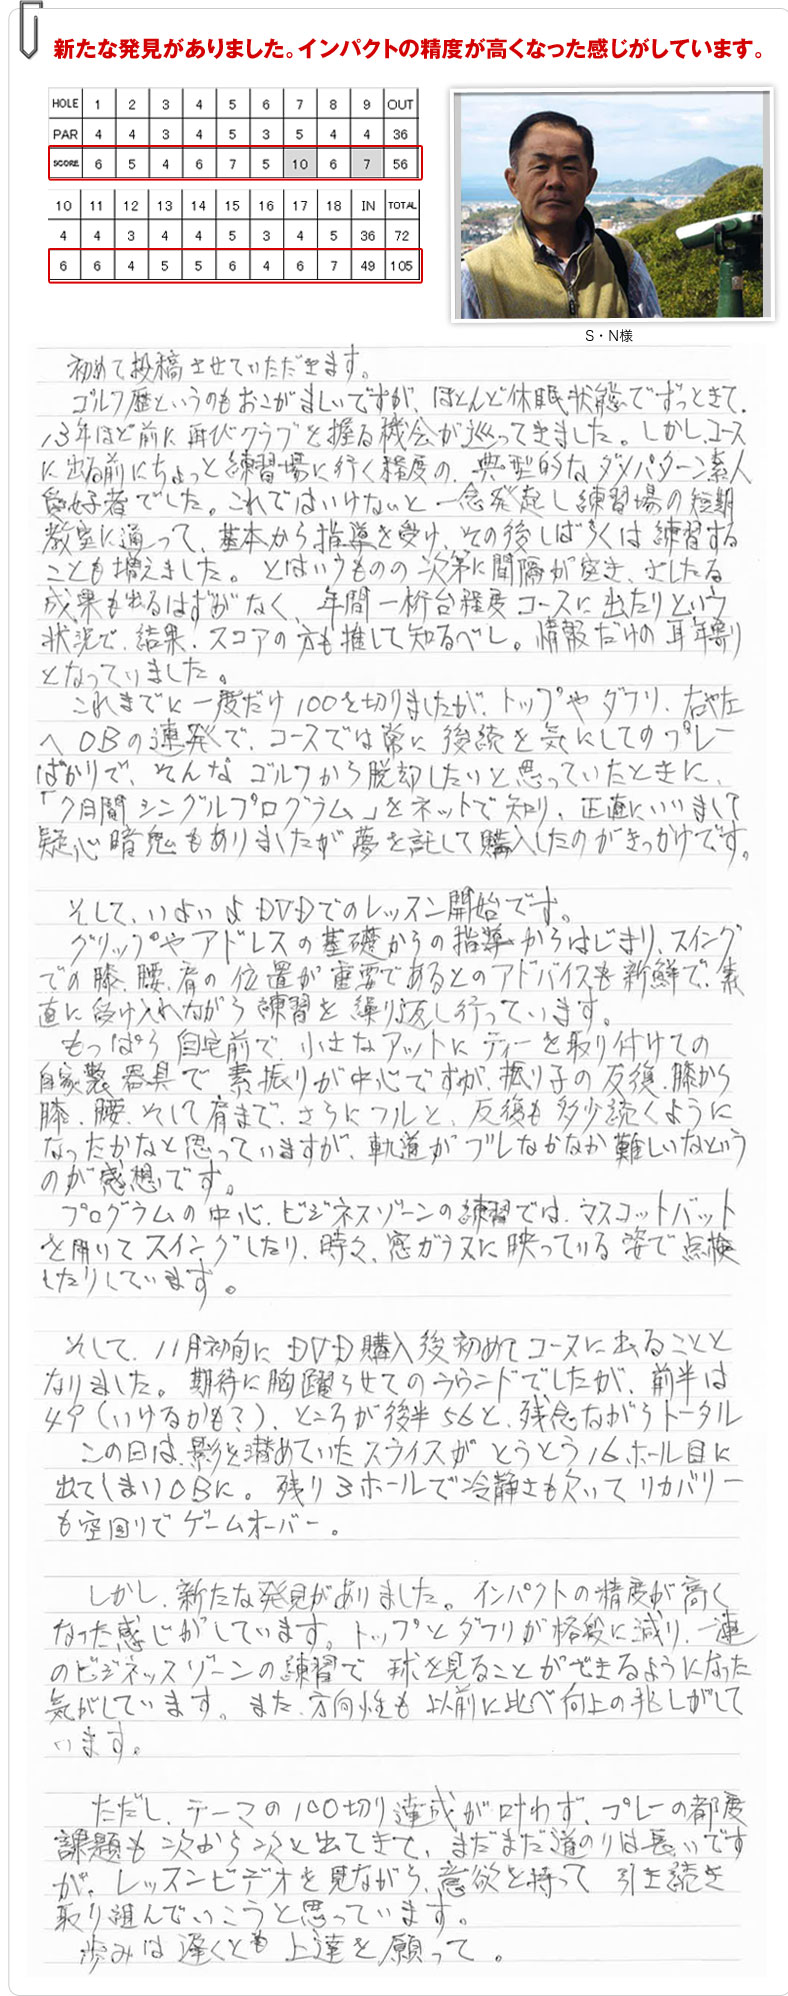 新たな発見がありました。インパクトの精度が高くなった感じがしています。
HOLE 1 2 3 4 5 6 7 8 9 OUT
PAR 4 4 3 4 5 3 5 4 4 36
SCORE 6 5 4 6 7 5 10 6 7 56
10 11 12 13 14 15 16 17 18 IN TOTAL
4 4 3 4 4 5 3 4 5 36 72
6 6 4 5 5 6 4 6 7 49 105
S・N様
初めて投稿させていただきます。
ゴルフ歴というのもおこがましいですが、ほとんど休眠状態でずっときて、
13年ほど前に再びクラブを握る機会が巡ってきました。しかし、コース
に出る前にちょっと練習場に行く程度の、典型的なダメパターン素人
愛好者でした。これではいけないと一念発起し練習場の短期
教室に通って、基本から指導を受け、その後しばらくは練習する
ことも増えました。とはいうものの次第に間隔が空き、さしたる
成果も出るはずがなく、年間一桁台程度コースに出たりという
状況で、結果、スコアの方も推して知るべし。情報だけの耳年寄り
となっていました。
これまでに一度だけ100を切りましたが、トップやダフリ、右や左
へOBの連発で、コースでは常に後続を気にしてのプレー
ばかりで、そんなゴルフから脱却したいと思っていたときに、
「7日間シングルプログラム」をネットで知り、正直にいいまして
疑心暗鬼もありましたが夢を託して購入したのがきっかけです。
そして、いよいよDVDでのレッスン開始です。
グリップやアドレスの基礎からの指導からはじまり、スイング
での膝、腰、肩の位置が重要であるとのアドバイスも新鮮で、素
直に受け入れながら練習を繰り返し行っています。
もっぱら自宅前で、小さなマットにティーを取り付けての
自家製器具で素振りが中心ですが、振り子の反復、膝から
膝、腰、そして肩まで、さらにフルと、反復も多少続くように
なったかなと思っていますが、軌道がブレなかなか難しいなという
のが感想です。
プログラムの中心、ビジネスゾーンの練習では、マスコットバット
を用いてスイングしたり、時々、窓ガラスに映っている姿で点検
したりしています。
そして、11月初旬にDVD購入後初めてコースに出ることと
なりました。期待に胸躍らせてのラウンドでしたが、前半は
49(いけるかも?)、ところが後半56と、残念ながらトータル
この日は、影を潜めていたスライスがとうとう16ホール目に
出てしまいOBに。残り3ホールで冷静さも欠いてリカバリー
も空回りでゲームオーバー。
しかし、新たな発見がありました。インパクトの精度が高く
なった感じがしています。トップとダフリが格段に減り、一連
のビジネッスゾーンの練習で球を見ることができるようになった
気がしています。また、方向性も以前に比べ向上の兆しがして
います。
ただし、テーマの100切り達成が叶わず、プレーの都度
課題も次から次と出てきて、まだまだ道のりは長いです
が、レッスンビデオを見ながら、意欲を持って引き続き
取り組んでいこうと思っています。
歩みは遅くとも上達を願って。